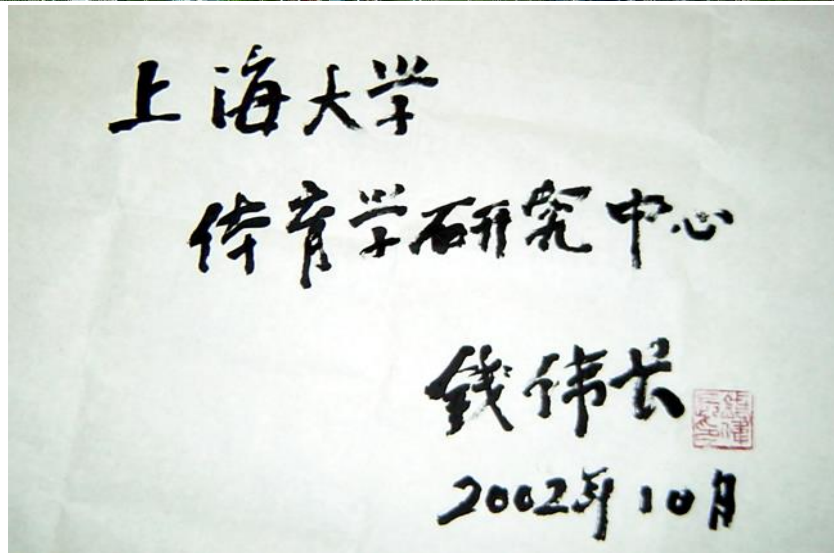 上海大学
体育学研究中心
錢伟长
2002年10月